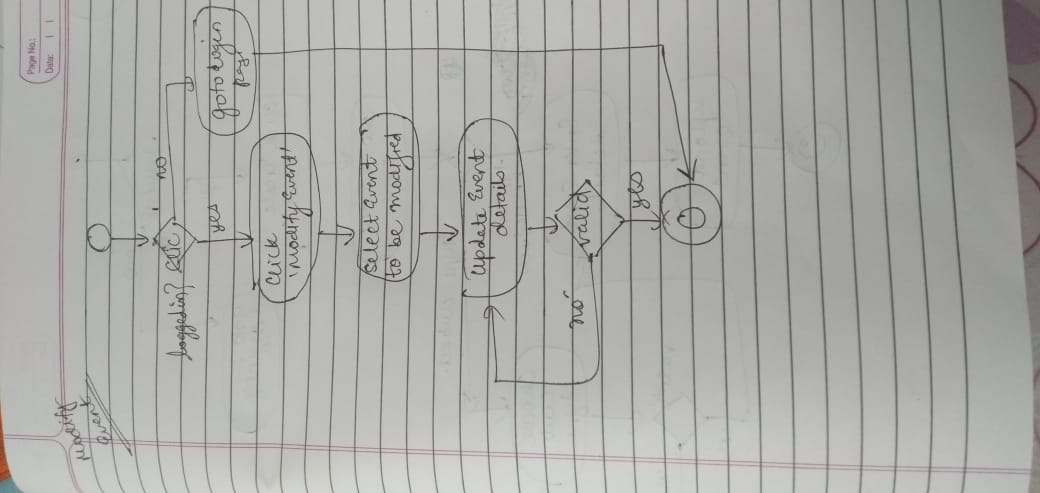 Page No.:
Date:
modify
event
logged in?
no
yes
goto login
page
Click
'Modify Event'
Select Event
to be modified
Update Event
details.
valid
no
yes